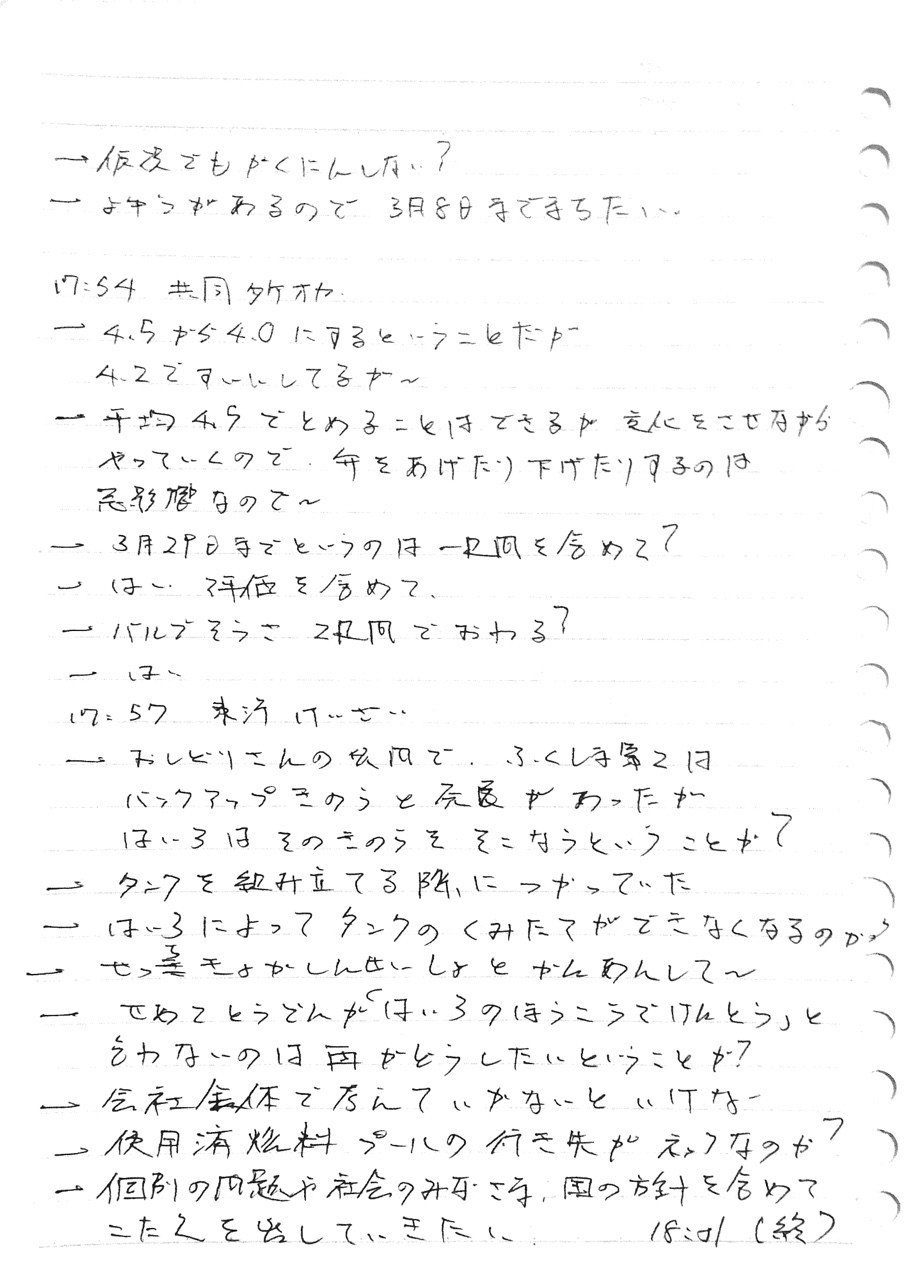 → 仮設でもかくにんしない?
→ よゆうがあるので 3月8日までまちたい.
17:54 共同 タケオカ
→ 4.5から4.0にするということだが
4.2ですいいしてるが〜
→ 平均4.5でとめることはできるが 変化をさせながら
やっていくので. 弁をあげたり下げたりするのは
悪影響なので〜
→ 3月29日までというのは 一段間を含めて?
→ はい 評価を含めて.
→ バルブそうさ 2段間でおわる?
→ はい
17:57 東洋けいざい
→ おしどりさんの質問で. ふくしま第2は
バックアップきのうと 発言があったが
はいろは そのきのうを そこなうということか?
→ タンクを組み立てる際に つかっていた
→ はいろによって タンクの くみたてができなくなるのか?
→ せっち きょかしんせいしょと かんあんして〜
→ せめて とうでんが「はいろのほうこうでけんとう」と
言わないのは 再かどうしたいということか?
→ 会社全体で考えて いかないと いけな―
→ 使用済燃料プールの行き先が ネックなのか?
→ 個別の問題や社会のみなさま, 国の方針を含めて
こたえを出していきたい 18:01 (終)